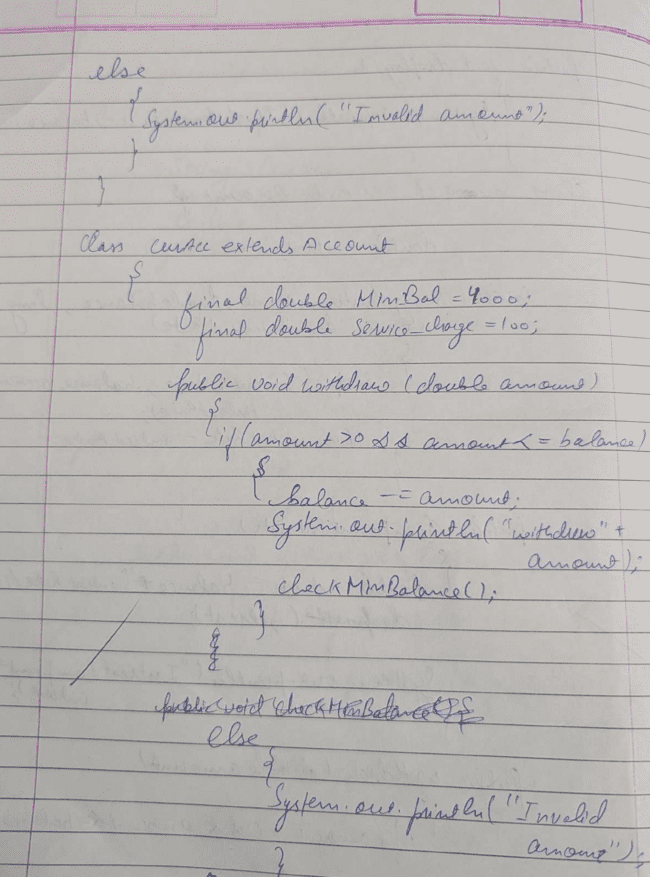 else
{
System.out.println("Invalid amount");
}
}
Class curAcc extends Account
{
final double MinBal = 4000;
final double Service_charge = 100;
public void withdraw (double amount)
{
if (amount > 0 && amount <= balance)
{
balance -= amount;
System.out.println("withdrew" +
amount);
checkMinBalance();
}
public void checkMinBalance() {
else
{
System.out.println("Invalid
amount");
}